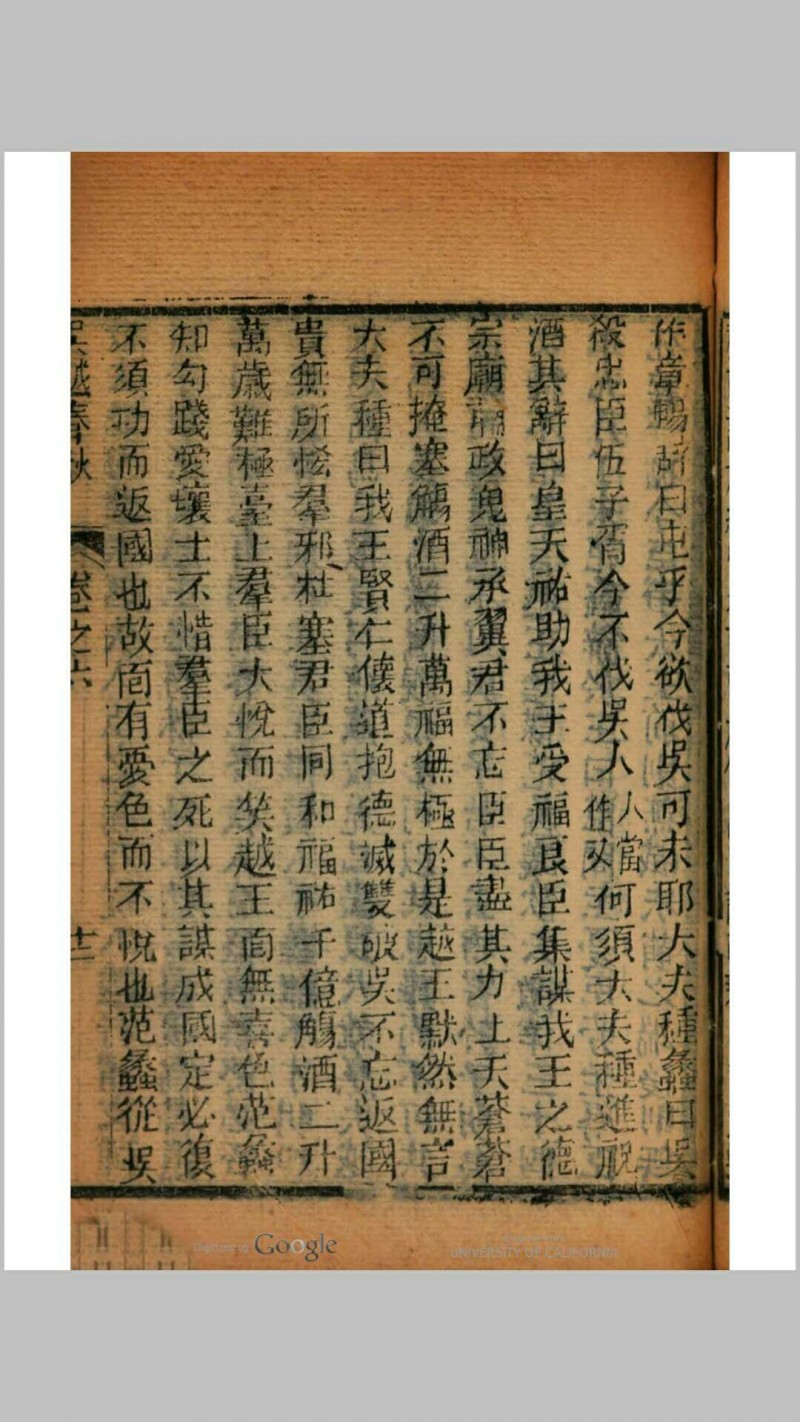 作章暢辭曰屯乎今欲伐吳可未耶大夫種蠡曰吳
殺忠臣伍子胥今不伐吳人人當作又何須大夫種進祝
酒其辭曰皇天祐助我王受福良臣集謀我王之德
宗廟輔政鬼神承翼君不忘臣臣盡其力上天蒼蒼
不可掩塞觴酒二升萬福無極於是越王默然無言
大夫種曰我王賢仁懷道抱德滅讐破吳不忘返國
賞無所恡羣邪杜塞君臣同和福祐千億觴酒二升
萬歲難極臺上羣臣大悅而笑越王面無喜色范蠡
知勾踐愛壤土不惜羣臣之死以其謀成國定必復
不須功而返國也故面有憂色而不悅也范蠡從吳
吳越春秋 卷之六 十二
Digitized by Google
UNIVERSITY OF CALIFORNIA